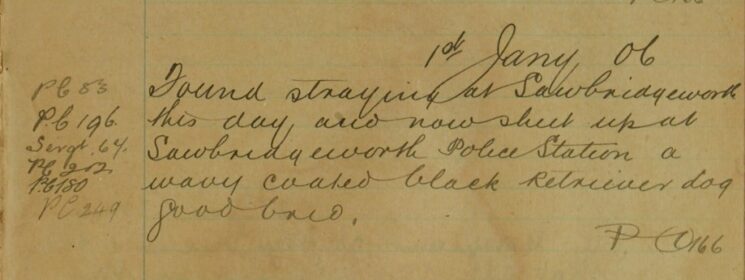 1st Jany 06
Found straying at Sawbridgeworth
this day, and now shut up at
Sawbridgeworth Police Station a
wavy coated black Retriever dog
good bred.
PC 166
PC 53
P.C 196
Sergt. 64.
PC 202
P.C 180
PC 249